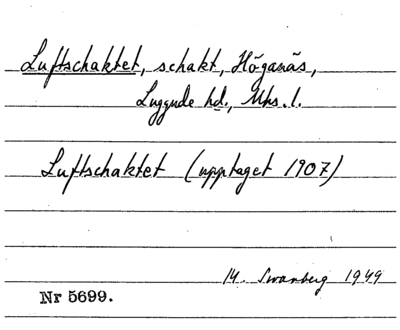 Luftschaktet, schakt, Höganäs,
Luggude hd., Mhs. l.
Luftschaktet (upptaget 1907)
14. Swanberg 1949
Nr 5699.